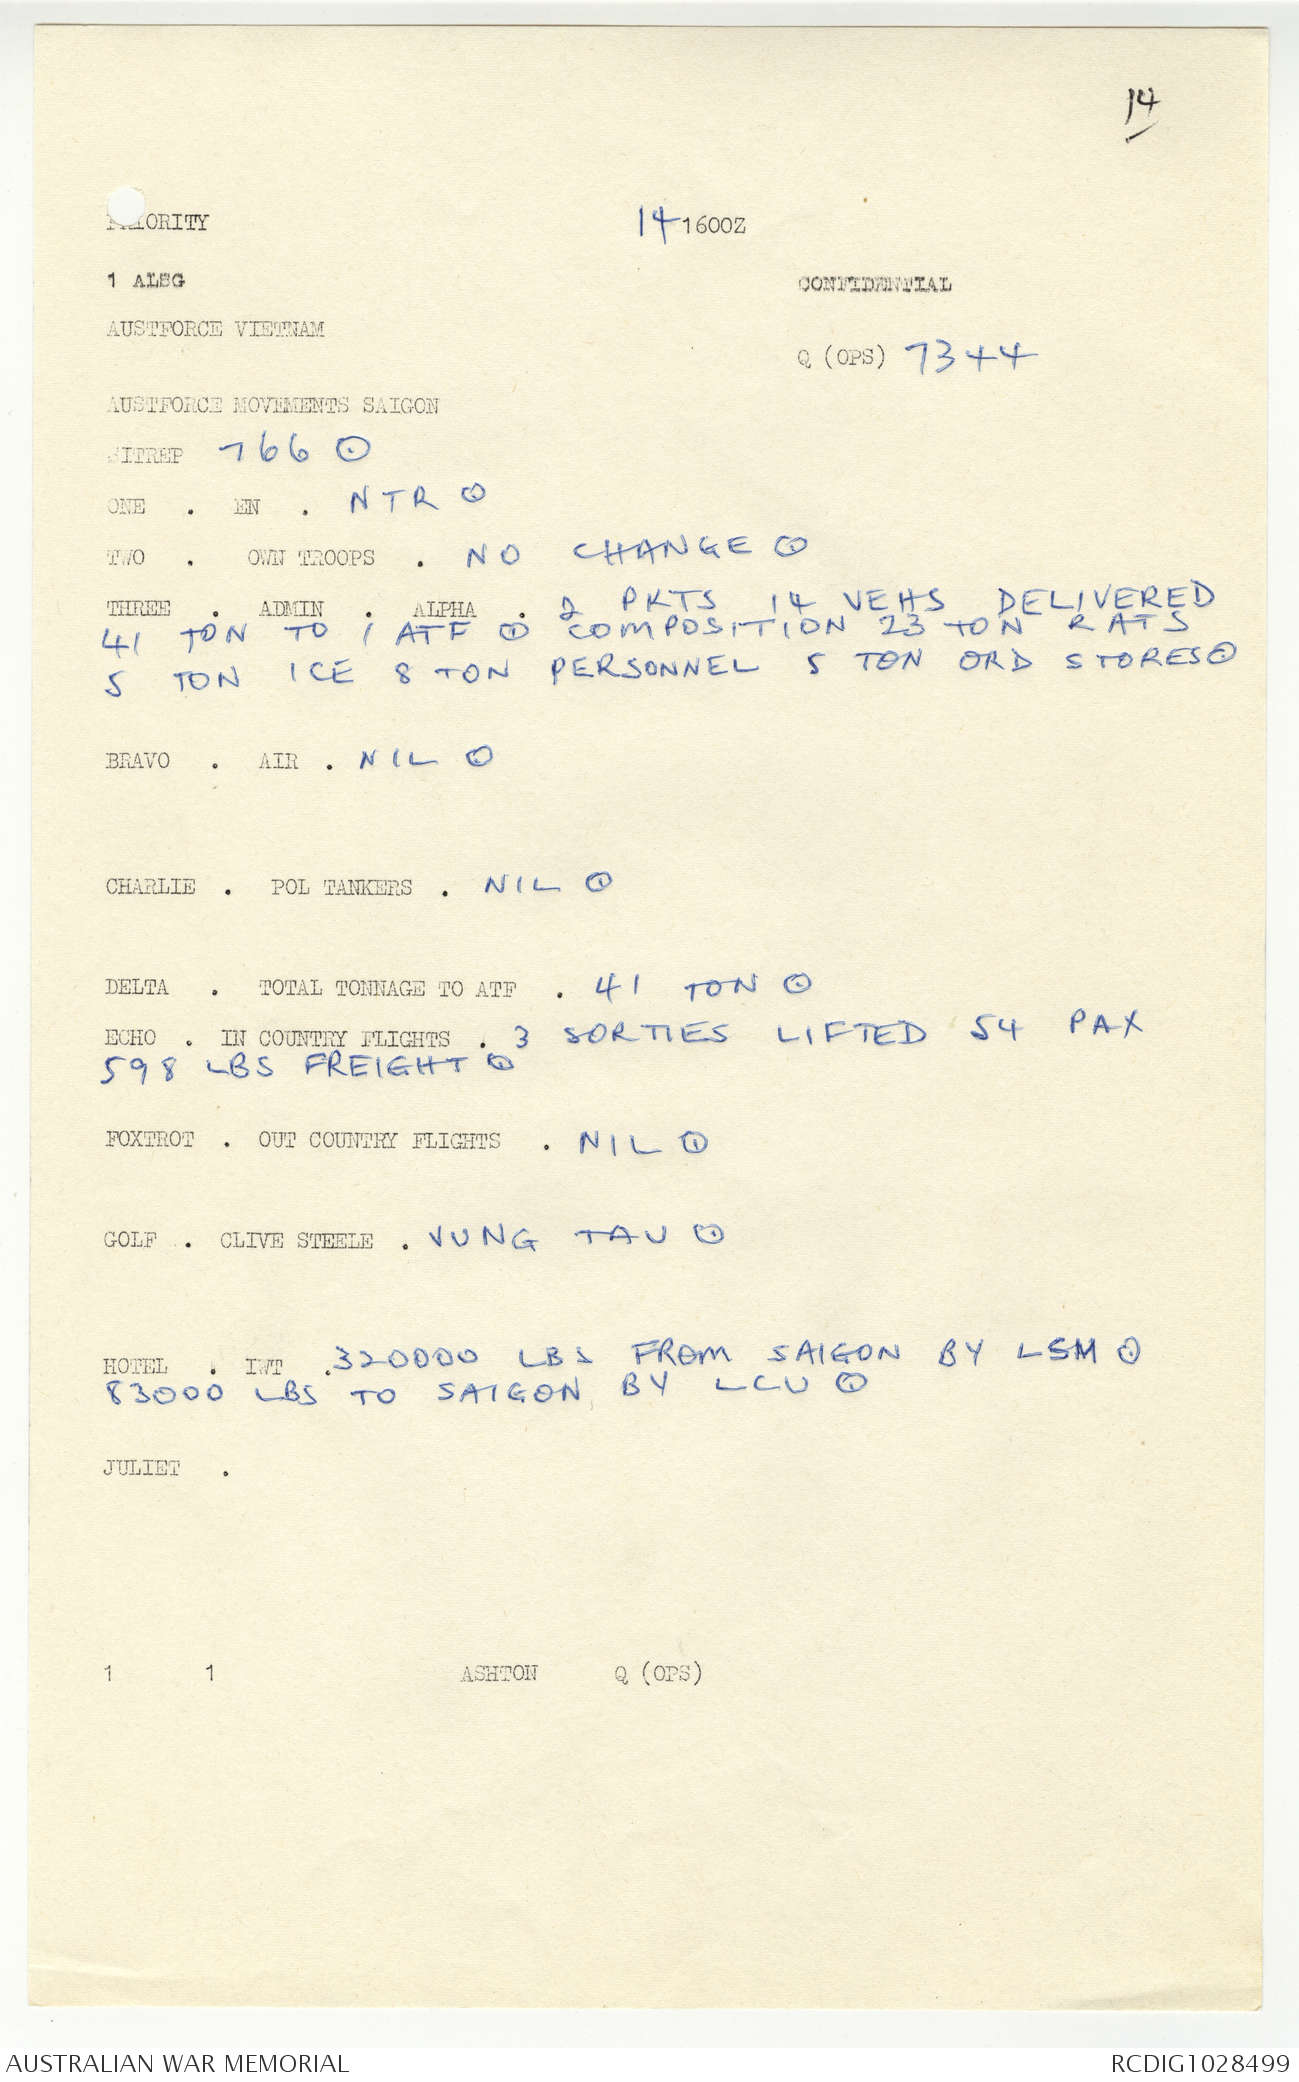 14
PRIORITY 14 1600Z
1 ALSG CONFIDENTIAL
AUSTFORCE VIETNAM
Q (OPS) 7344
AUSTFORCE MOVEMENTS SAIGON
SITREP 766 ⊙
ONE . EN . NTR ⊙
TWO . OWN TROOPS . NO CHANGE ⊙
THREE . ADMIN . ALPHA . 2 PKTS 14 VEHS DELIVERED
41 TON TO 1 ATF ⊙ COMPOSITION 23 TON RATS
5 TON ICE 8 TON PERSONNEL 5 TON ORD STORES ⊙
BRAVO . AIR . NIL ⊙
CHARLIE . POL TANKERS . NIL ⊙
DELTA . TOTAL TONNAGE TO ATF . 41 TON ⊙
ECHO . IN COUNTRY FLIGHTS . 3 SORTIES LIFTED 54 PAX
598 LBS FREIGHT ⊙
FOXTROT . OUT COUNTRY FLIGHTS . NIL ⊙
GOLF . CLIVE STEELE . VUNG TAU ⊙
HOTEL . IWT . 320000 LBS FROM SAIGON BY LSM ⊙
83000 LBS TO SAIGON BY LCU ⊙
JULIET .
1 1 ASHTON Q (OPS)
AUSTRALIAN WAR MEMORIAL RCDIG1028499